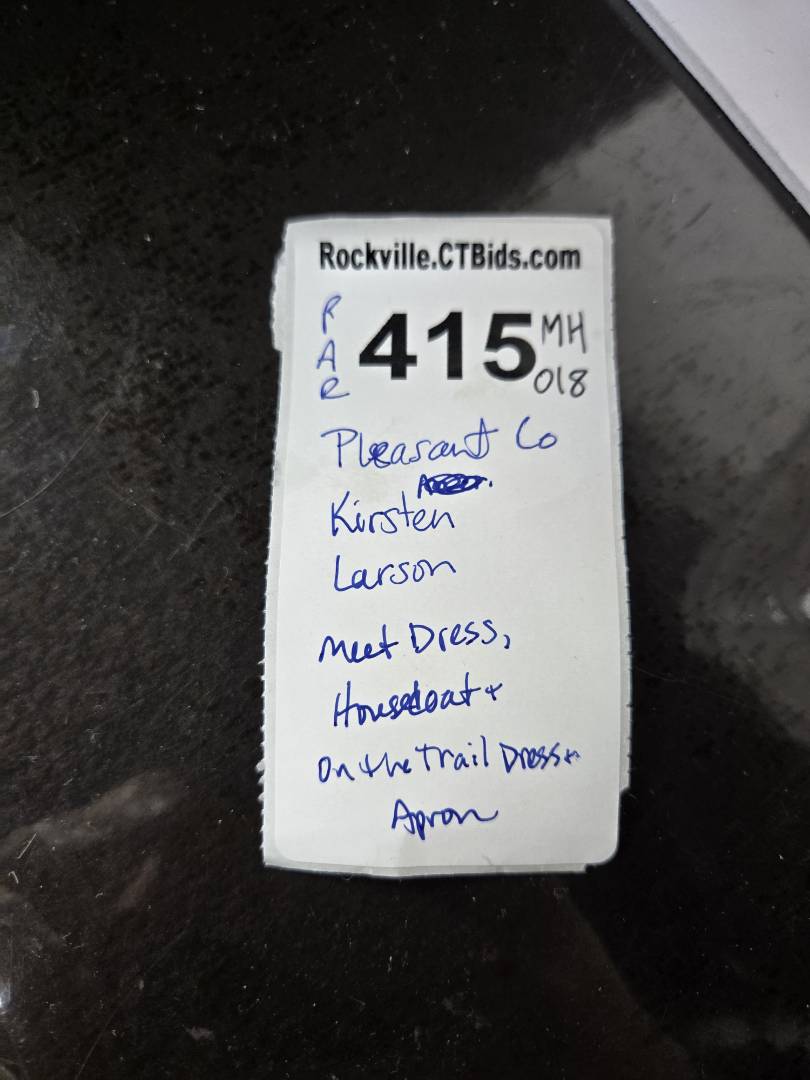 Rockville.CTBids.com
RAR 415 MH
018
Pleasant Co
Kirsten
Larson
Meet Dress,
Housecoat +
On the Trail Dress +
Apron